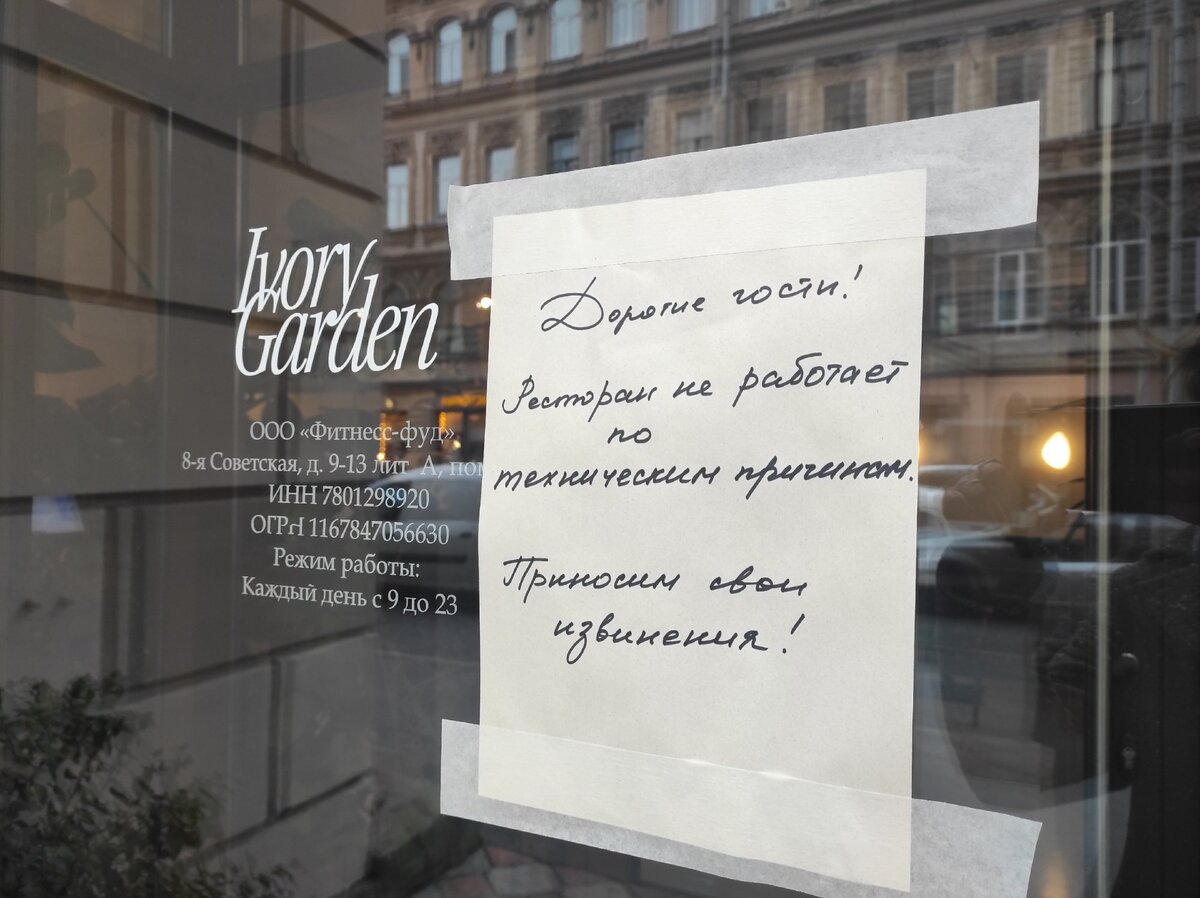 Ivory
Garden
ООО «Фитнесс-фуд»
8-я Советская, д. 9-13 лит А, пом
ИНН 7801298920
ОГРН 1167847056630
Режим работы:
Каждый день с 9 до 23
Дорогие гости!
Ресторан не работает
по
техническим причинам.
Приносим свои
извинения!